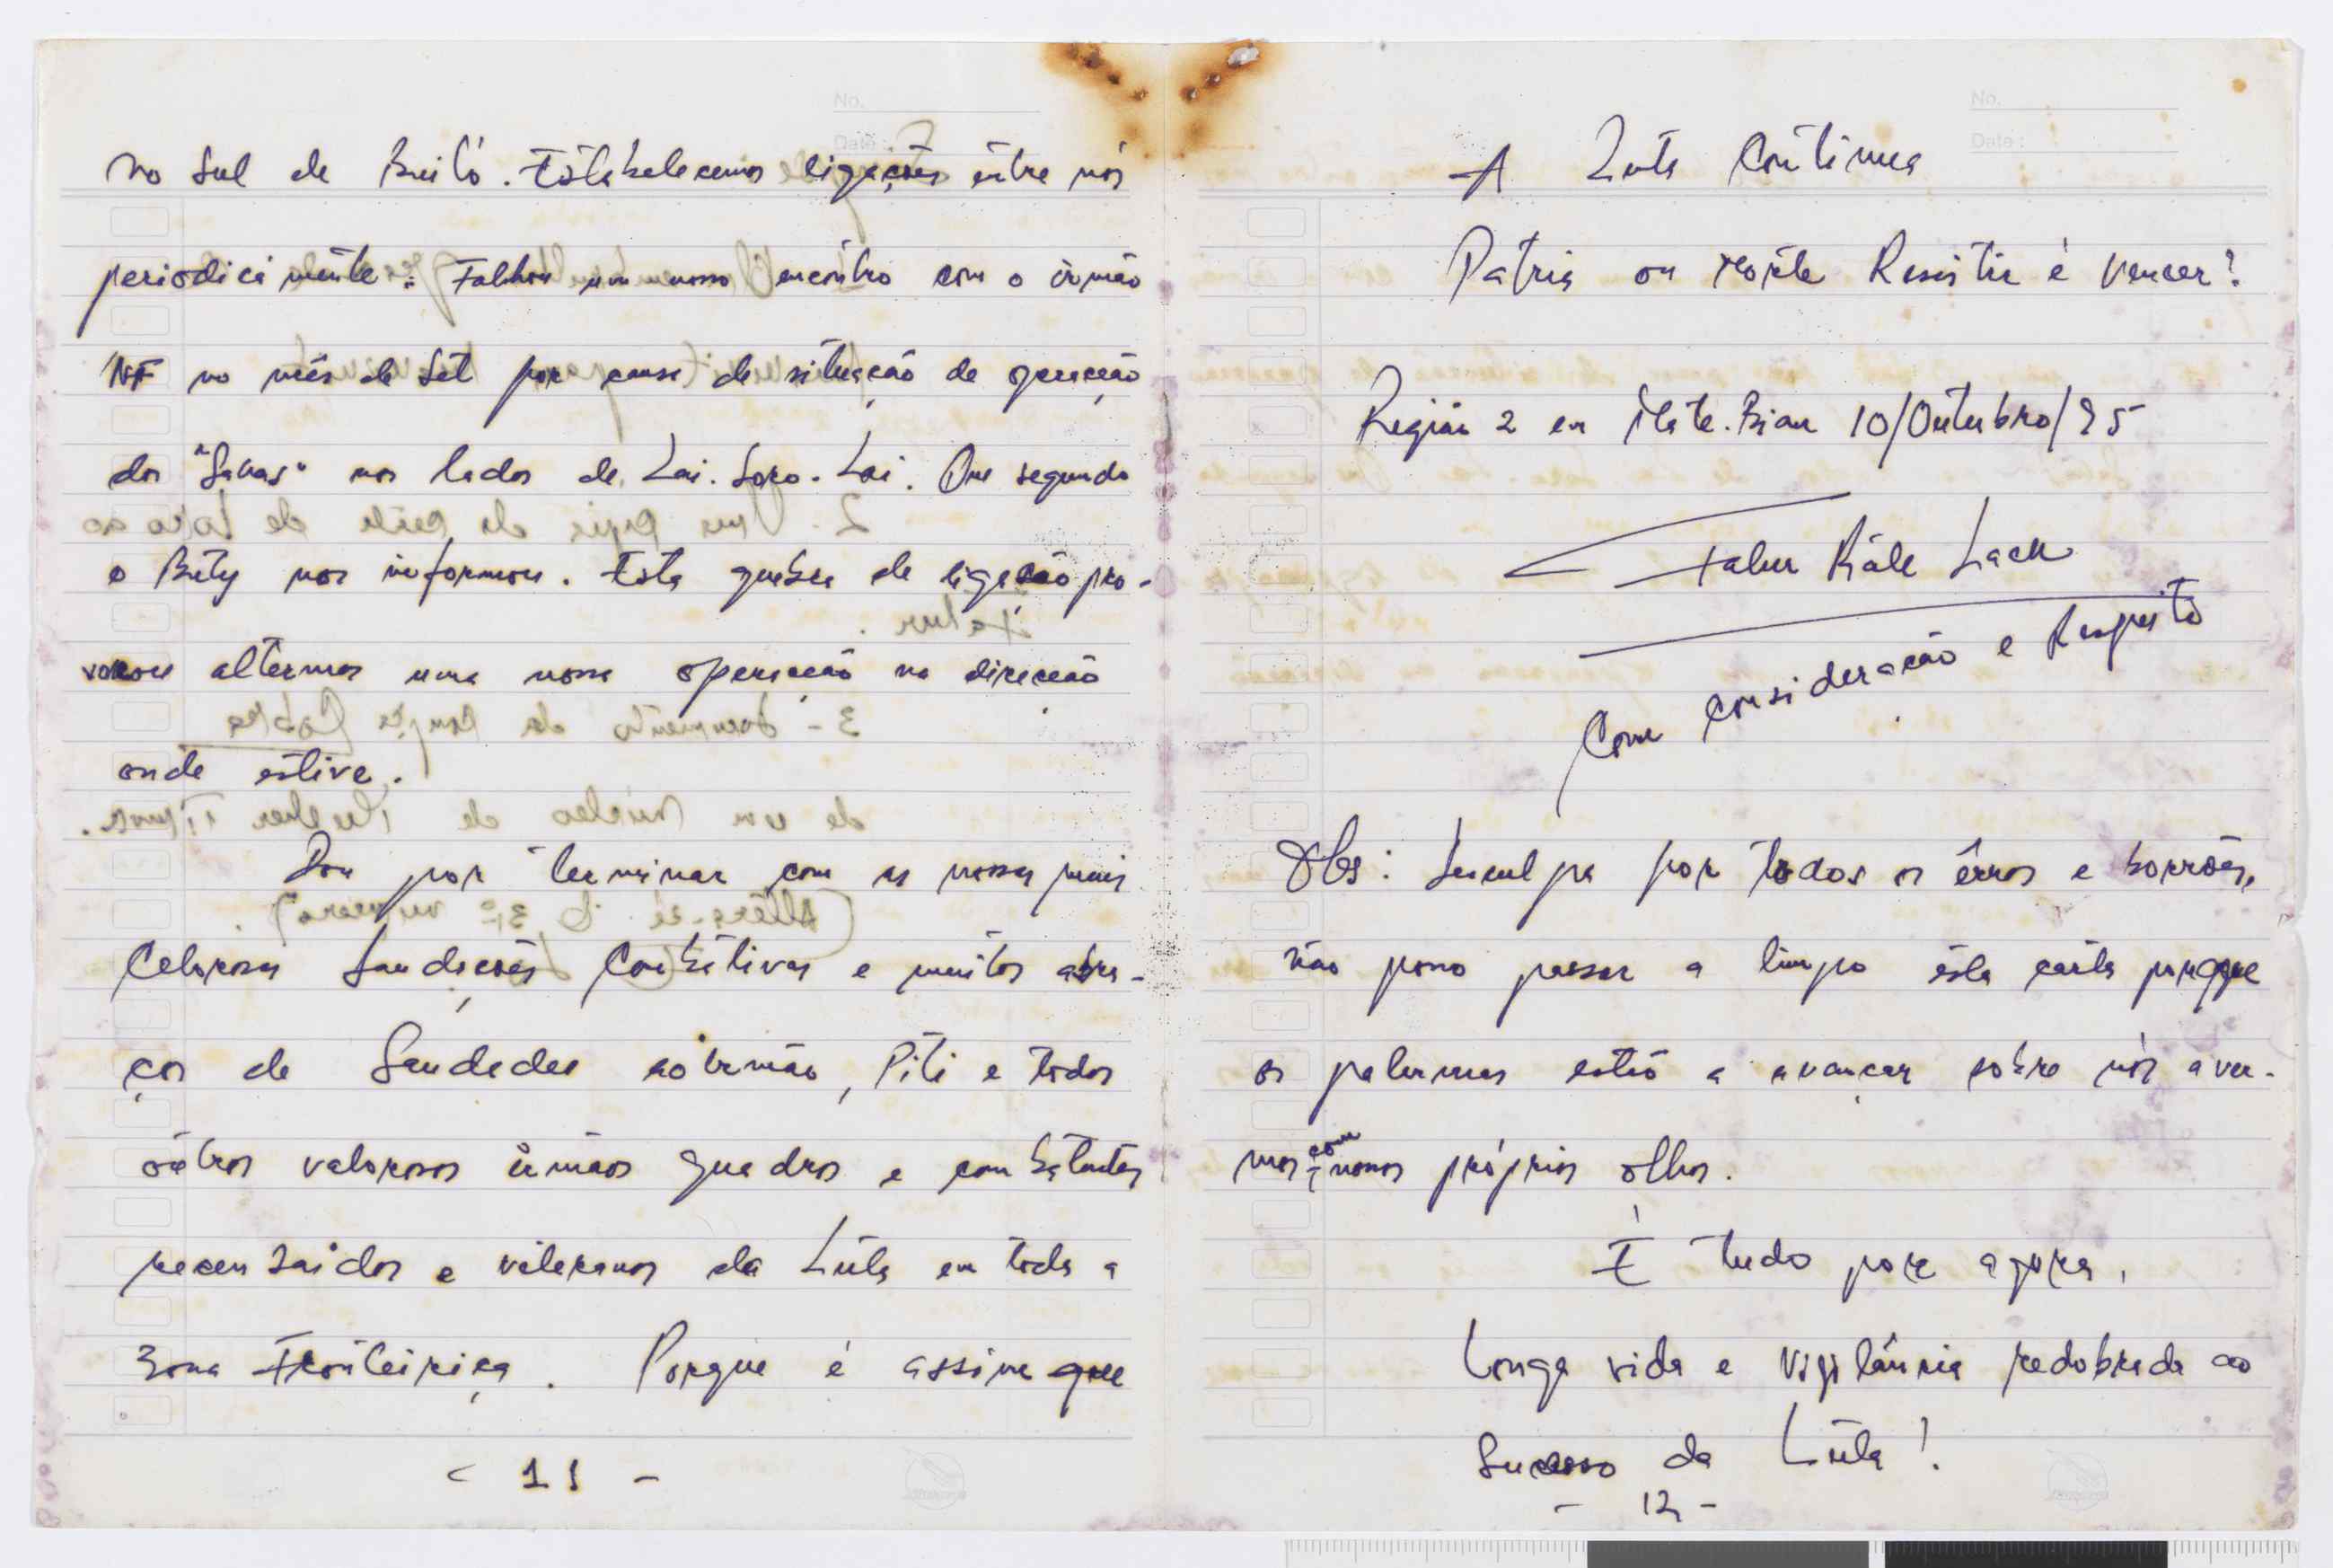 No.
Date :
no Sul de Builó. Estabelecemos ligações entre nós
periodicamente. Falhou um nosso encontro com o irmão
NF no mês de Set por causa de situação de operação
dos "Sakas" nos lados de Lai. Soro. Lai. Que segundo
o Bity nos informou. Esta quebra de ligação pro-
vocou alternos uma nossa operação na direcção
onde estive.
Dou por terminar com as nossas mais
Calorosas Saudações Combativas e muitos abra-
ços de Saudades ao irmão, Piti e todos
outros valorosos irmãos quadros e combatentes
recem saidos e veteranos da Luta em toda a
Zona Fronteiriça. Porque é assim que
- 11 -
No.
Date :
A Luta Continua
Patria ou Morte Resistir é Vencer!
Região 2 em Mate. Bian 10/Outubro/95
Falur Rate Laek
Com consideração e Respeito
Obs: Desculpa por todos os êrros e borrões,
não posso passar a limpo esta carta porque
os palermas estão a avançar sobre nós a ver-
mos com nossos próprios olhos.
É tudo por agora.
Longa vida e Vigilância redobrada ao
Sucesso da Luta!
- 12 -